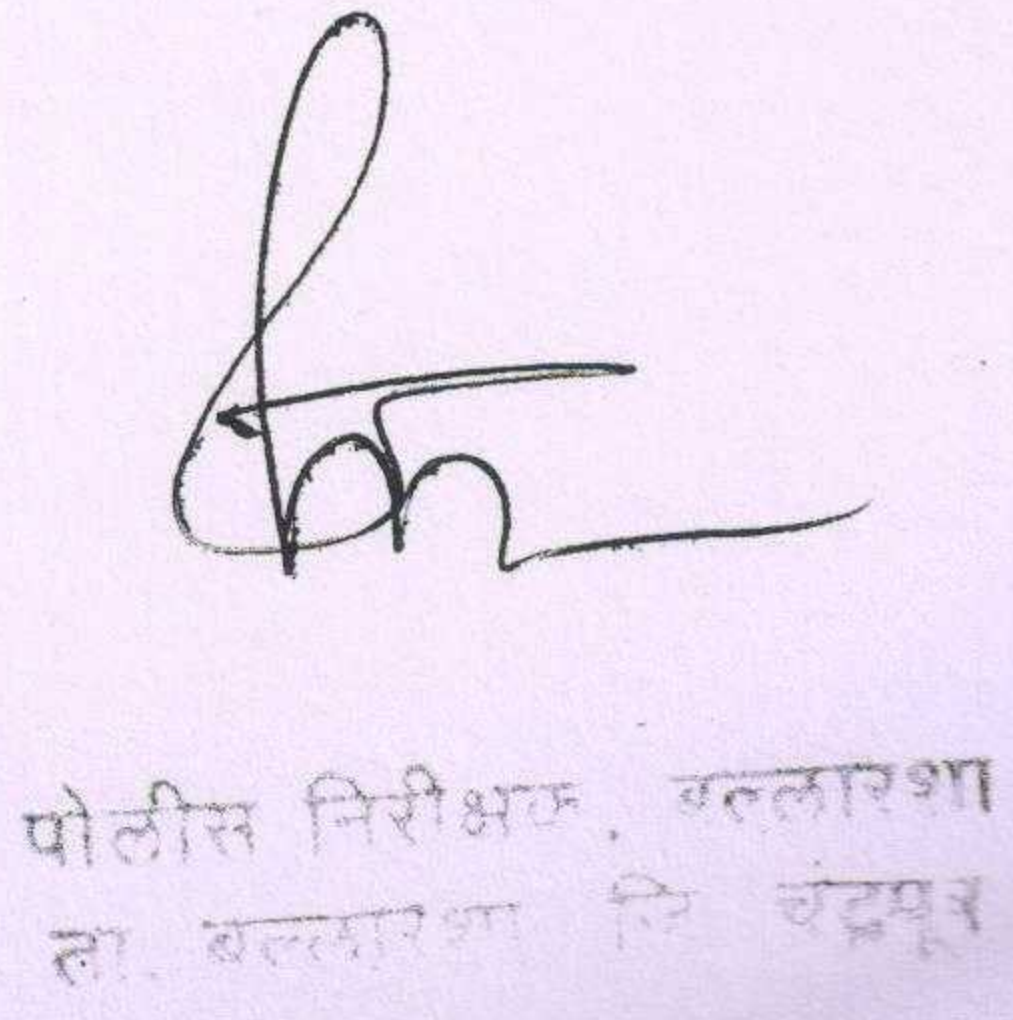 पोलीस निरीक्षक. बल्लारशा
ता. बल्लारशा जि चंद्रपूर